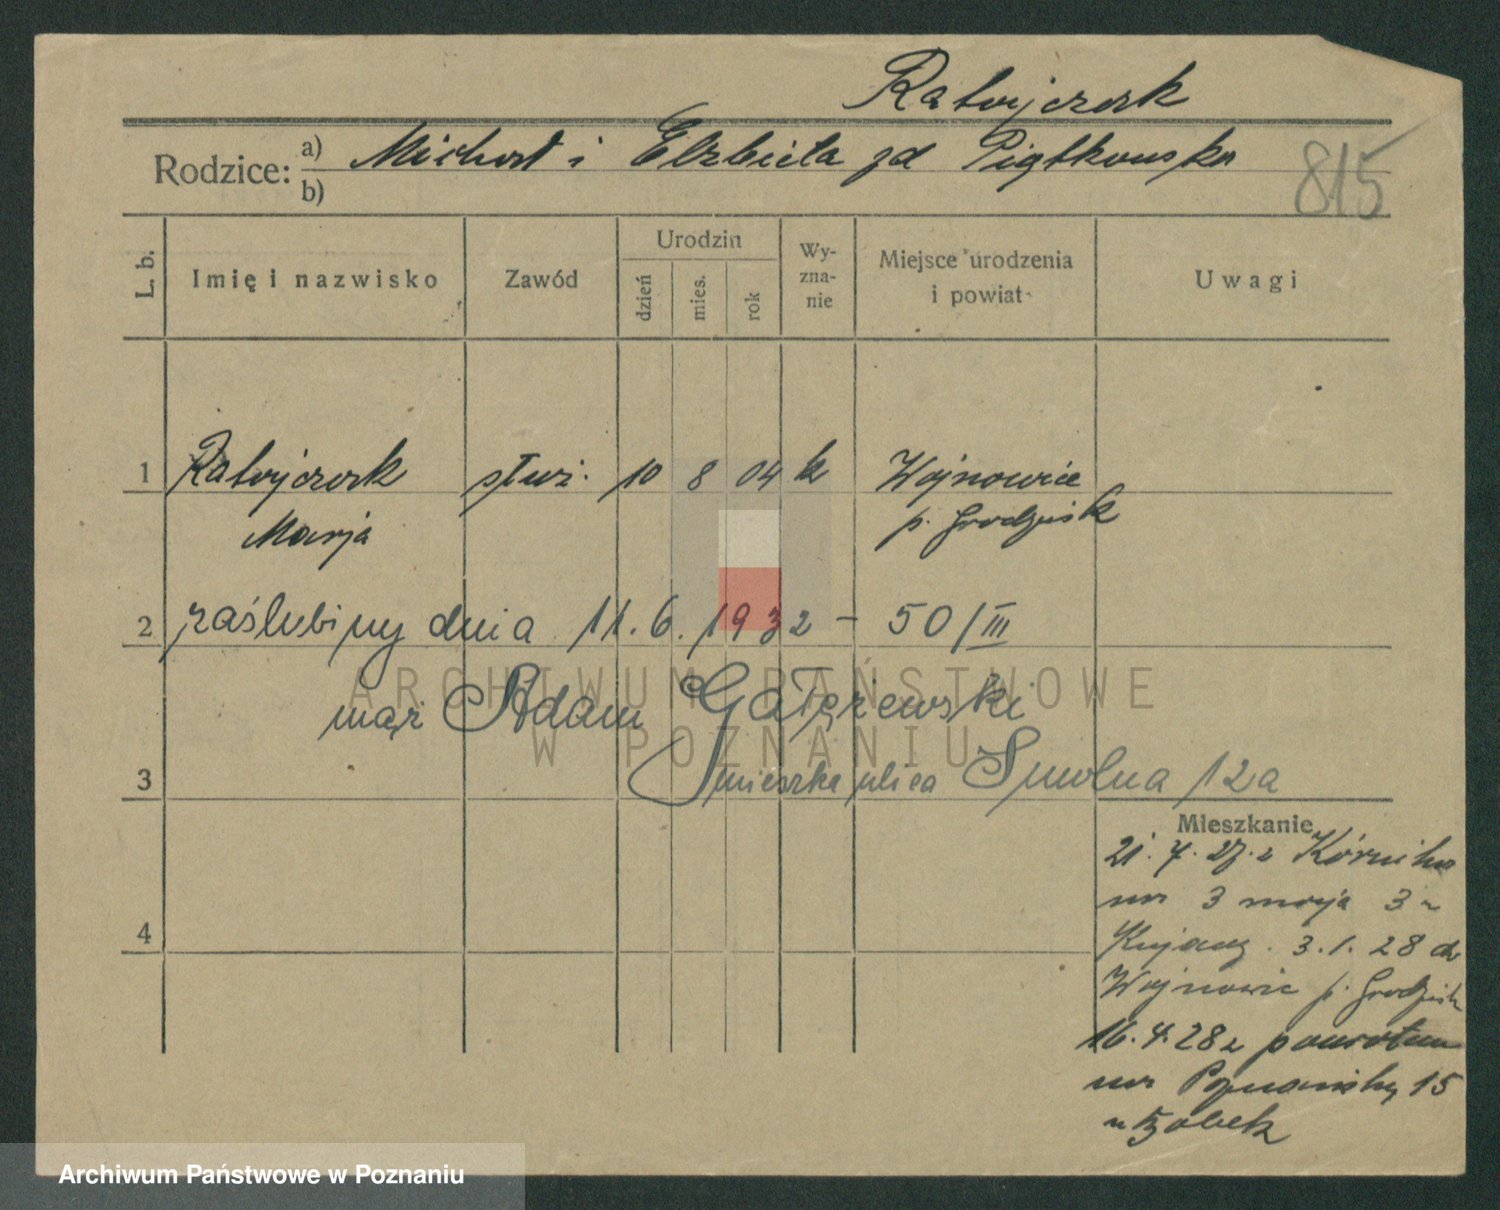 Ratajczak
Rodzice: a) Michał i Elżbieta zd Piątkowska
b)
815
L. b.
Imię i nazwisko
Zawód
Urodzin
dzień
mies.
rok
Wy-
zna-
nie
Miejsce urodzenia
i powiat
Uwagi
1 Ratajczak służ. 10 8 04 k Wojnowice
Marja p. Grodzisk
2 zaślubiny dnia 11.6.1932 – 50/III
mąż Adam Gałężewski
3 mieszka ulica Smolna 12a
Mieszkanie
21.7.27. z Kórnika
na 3 maja 3 u
4
3.1.28 do
Wojnowic p. Grodzisk
16.4.28 z powrotem
na 15
ARCHIWUM PAŃSTWOWE
W POZNANIU
Archiwum Państwowe w Poznaniu